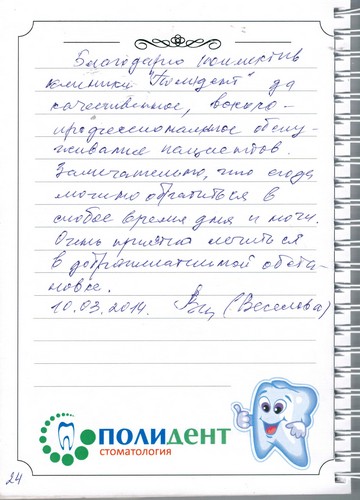 Благодарю коллектив
клиники "Полидент" за
качественное, высоко-
профессиональное обслу-
живание пациентов.
Замечательно, что сюда
можно обратиться в
любое время дня и ночи.
Очень приятно лечиться
в доброжелательной обста-
новке.
10.03.2014. (Веселова)
ПОЛИДЕНТ
СТОМАТОЛОГИЯ
24